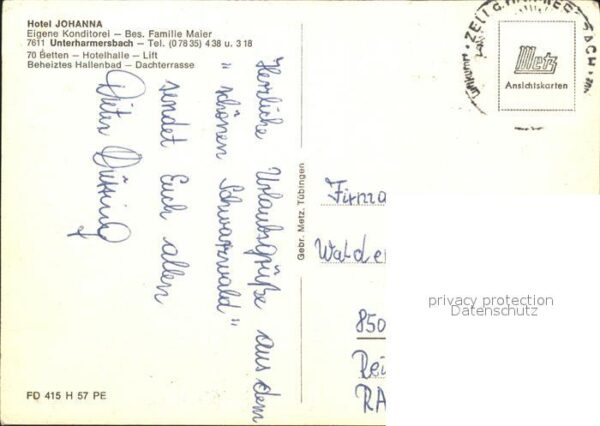 Hotel JOHANNA
Eigene Konditorei – Bes. Familie Maier
7611 Unterharmersbach – Tel. (07835) 438 u. 318
70 Betten – Hotelhalle – Lift
Beheiztes Hallenbad – Dachterrasse
Herzliche Urlaubsgrüße aus dem
"schönen Schwarzwald"
sendet Euch allen
Dieter
Gebr. Metz, Tübingen
FD 415 H 57 PE
ZELL
Metz
Ansichtskarten
Firma
850
privacy protection
Datenschutz